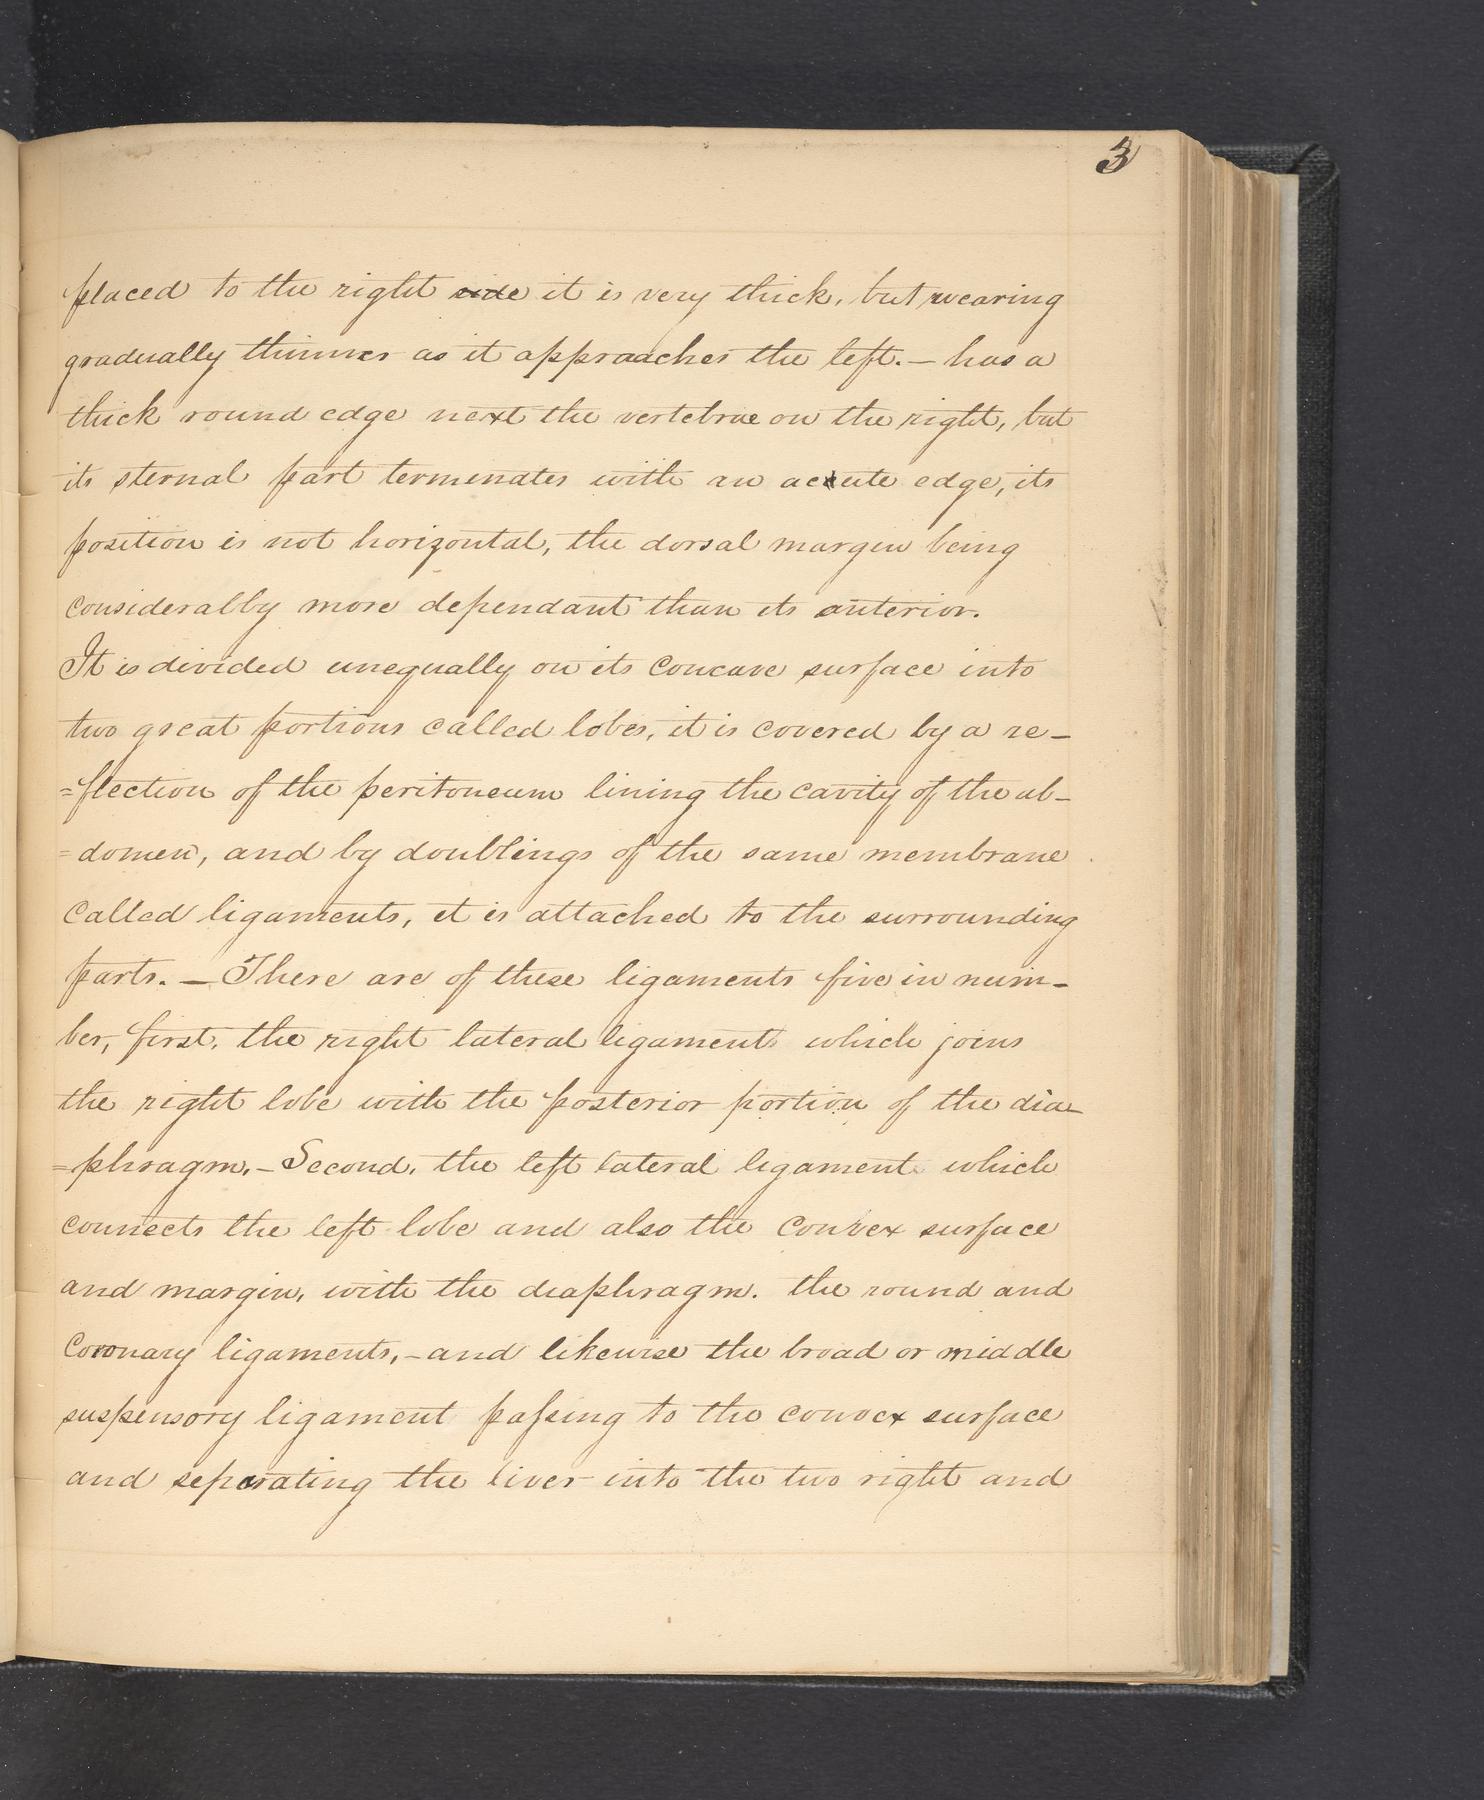 3
placed to the right side it is very thick, but wearing
gradually thinner as it appraaches the left. — has a
thick round edge next the vertebrae on the right, but
its sternal part terminates with an acute edge, its
position is not horizontal, the dorsal margin being
considerabby more dependant than its anterior.
It is divided unequally on its Concave surface into
two great portions called lobes, it is covered by a re-
=flection of the peritoneum lining the cavity of the ab-
=domen, and by doublings of the same membrane
Called ligaments, it is attached to the surrounding
parts. — There are of these ligaments five in num-
ber, first, the right lateral ligament which joins
the right lobe with the posterior portion of the dia-
=phragm. - Second, the left lateral ligament which
connects the left lobe and also the Convex surface
and margin, with the diaphragm. the round and
Coronary ligaments, - and likewise the broad or middle
suspensory ligament paſsing to the convex surface
and separating the liver into the two right and